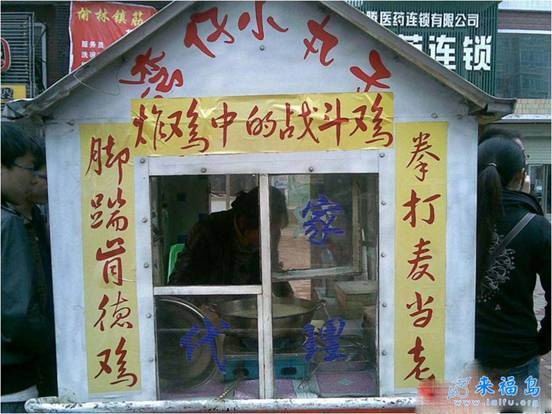 榆林镇筋
医药连锁有限公司
药连锁
小丸子
炸鸡中的战斗鸡
脚踹肯德鸡
拳打麦当老
家
代理
来福岛
www.laifu.org